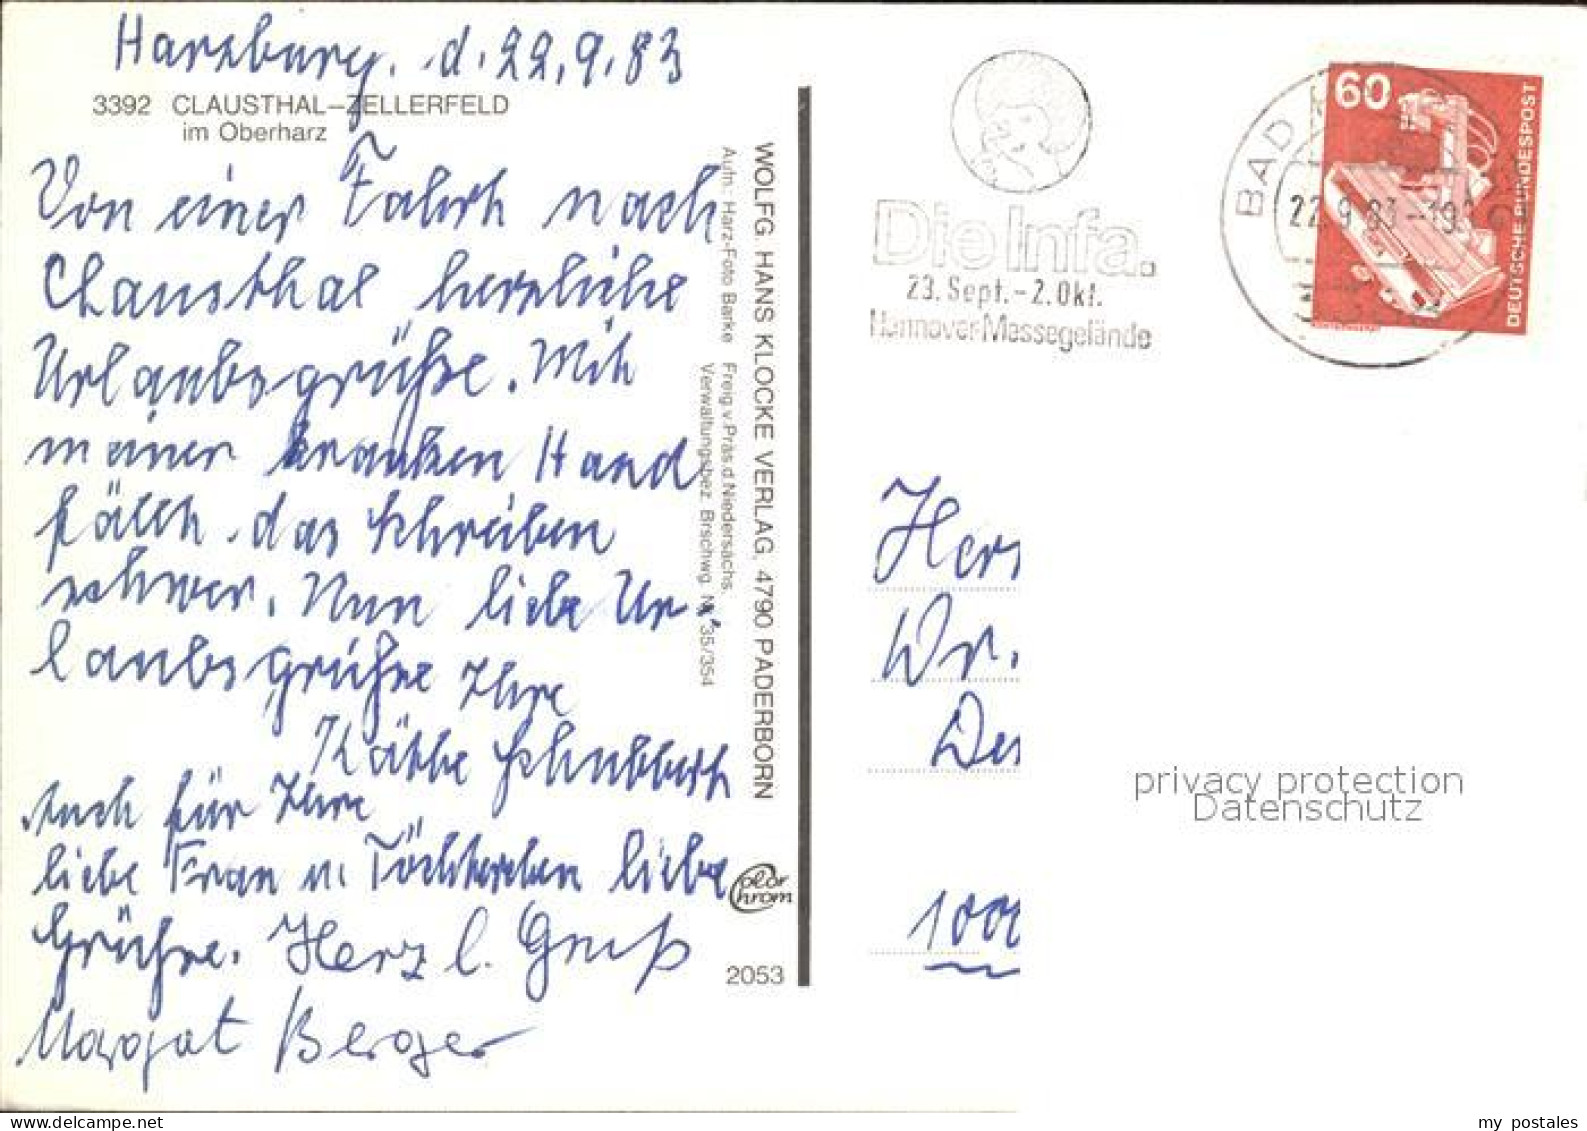 Harzburg, d. 22.9.83
3392 CLAUSTHAL-ZELLERFELD
im Oberharz
Von einer Fahrt nach
Clausthal herzliche
Urlaubsgrüße. Mit
meiner kranken Hand
fällt das Schreiben
schwer. Nun liebe Ur-
laubsgrüße Ihre
Käthe Schubbert
Auch für Ihre
liebe Frau u. Töchterchen liebe
Grüße. Herzl. Gruß
Margot Berger
WOLFG. HANS KLOCKE VERLAG, 4790 PADERBORN
Aufn.: Harz-Foto Barke Freig. v. Präs. d. Niedersächs.
Verwaltungsbez. Brschwg. Nr. 35/354
Color
Chrom
2053
Die Infa.
23. Sept.-2.Okt.
Hannover-Messegelände
BAD
22.9.83-19
60
DEUTSCHE BUNDESPOST
Herr
Dr.
1000
privacy protection
Datenschutz
my postales